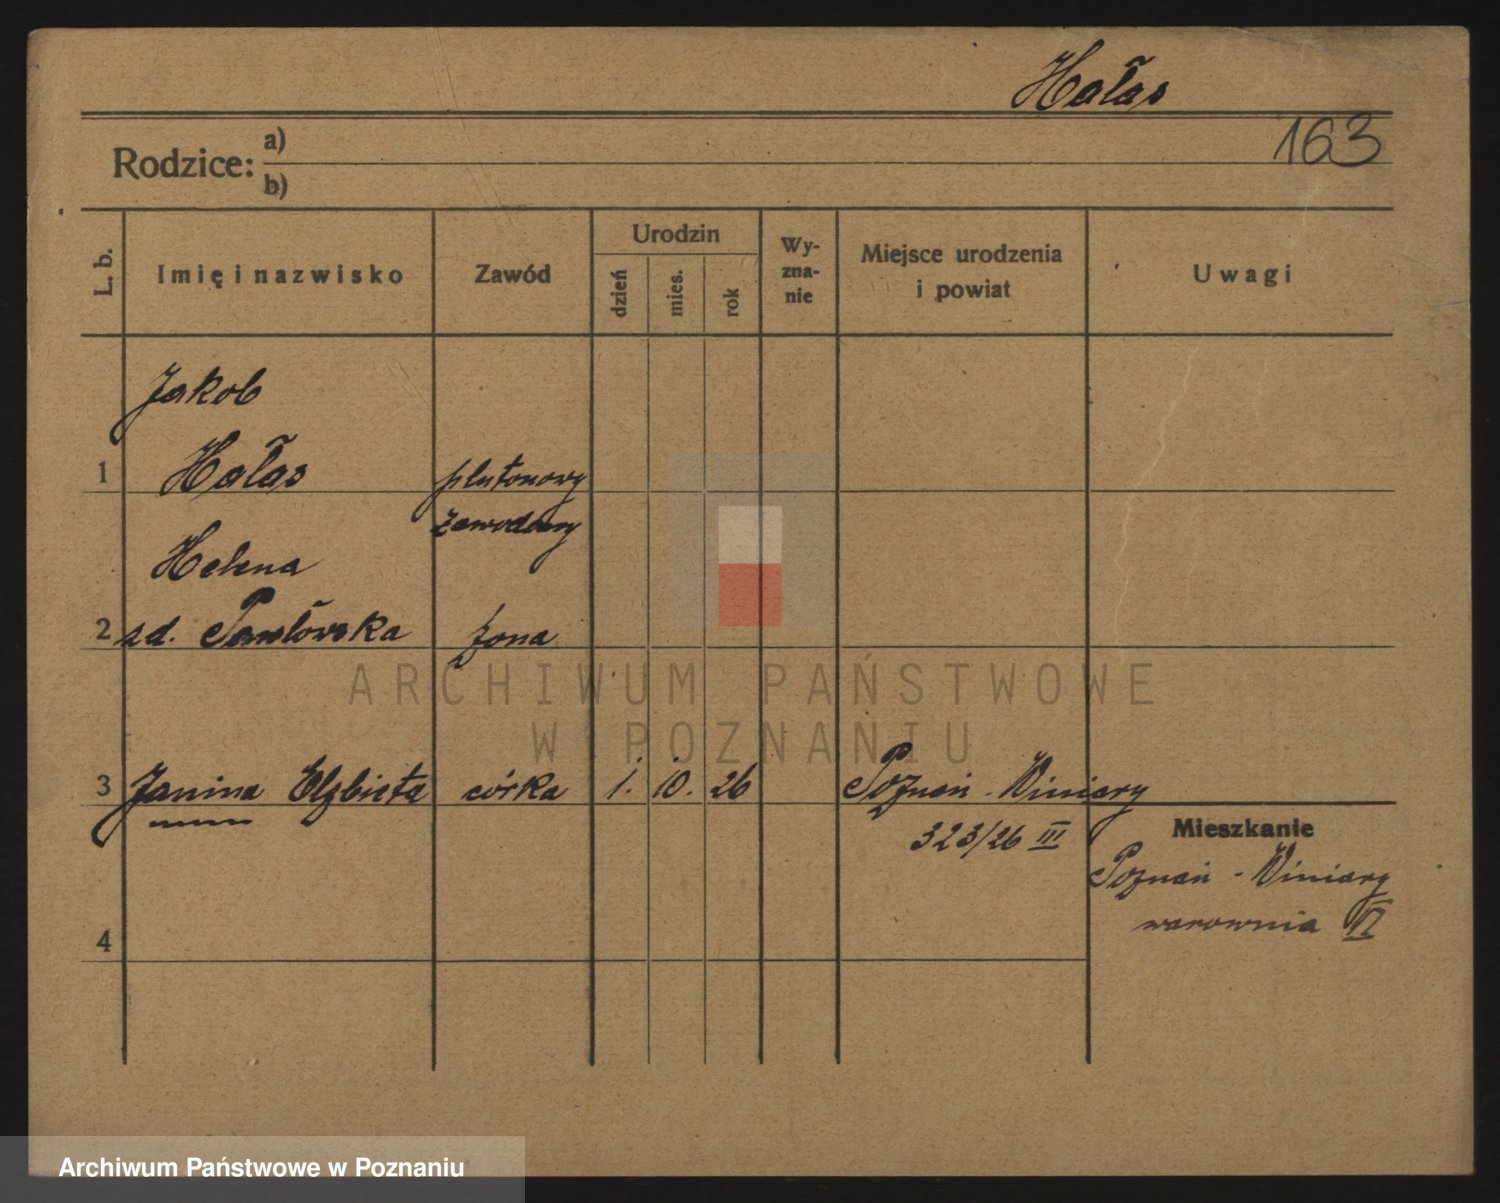 Hałas
163
Rodzice: a)
b)
L. b. Imię i nazwisko Zawód Urodzin dzień mies. rok Wy-zna-nie Miejsce urodzenia i powiat Uwagi
Jakob
1 Hałas plutonowy
zawodowy
Helena
2 zd. Pawłowska żona
ARCHIWUM PAŃSTWOWE
W POZNANIU
3 Janina Elżbieta córka 1. 10. 26 Poznań - Winiary
323/26 III
Mieszkanie
Poznań - Winiary
warownia
4
Archiwum Państwowe w Poznaniu